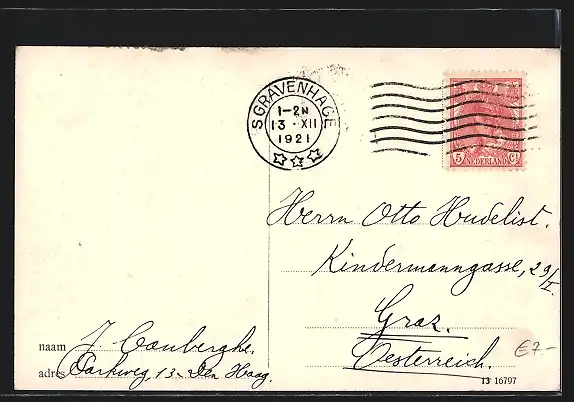 'SGRAVENHAGE
1-2N
13 · XII
1921
5 NEDERLAND Ct
Herrn Otto Hudelist.
Kindermanngasse, 29/I.
Graz.
Oesterreich.
naam J. Cauberghe.
adres Parkweg, 13. Den Haag.
13 16797
€7.-